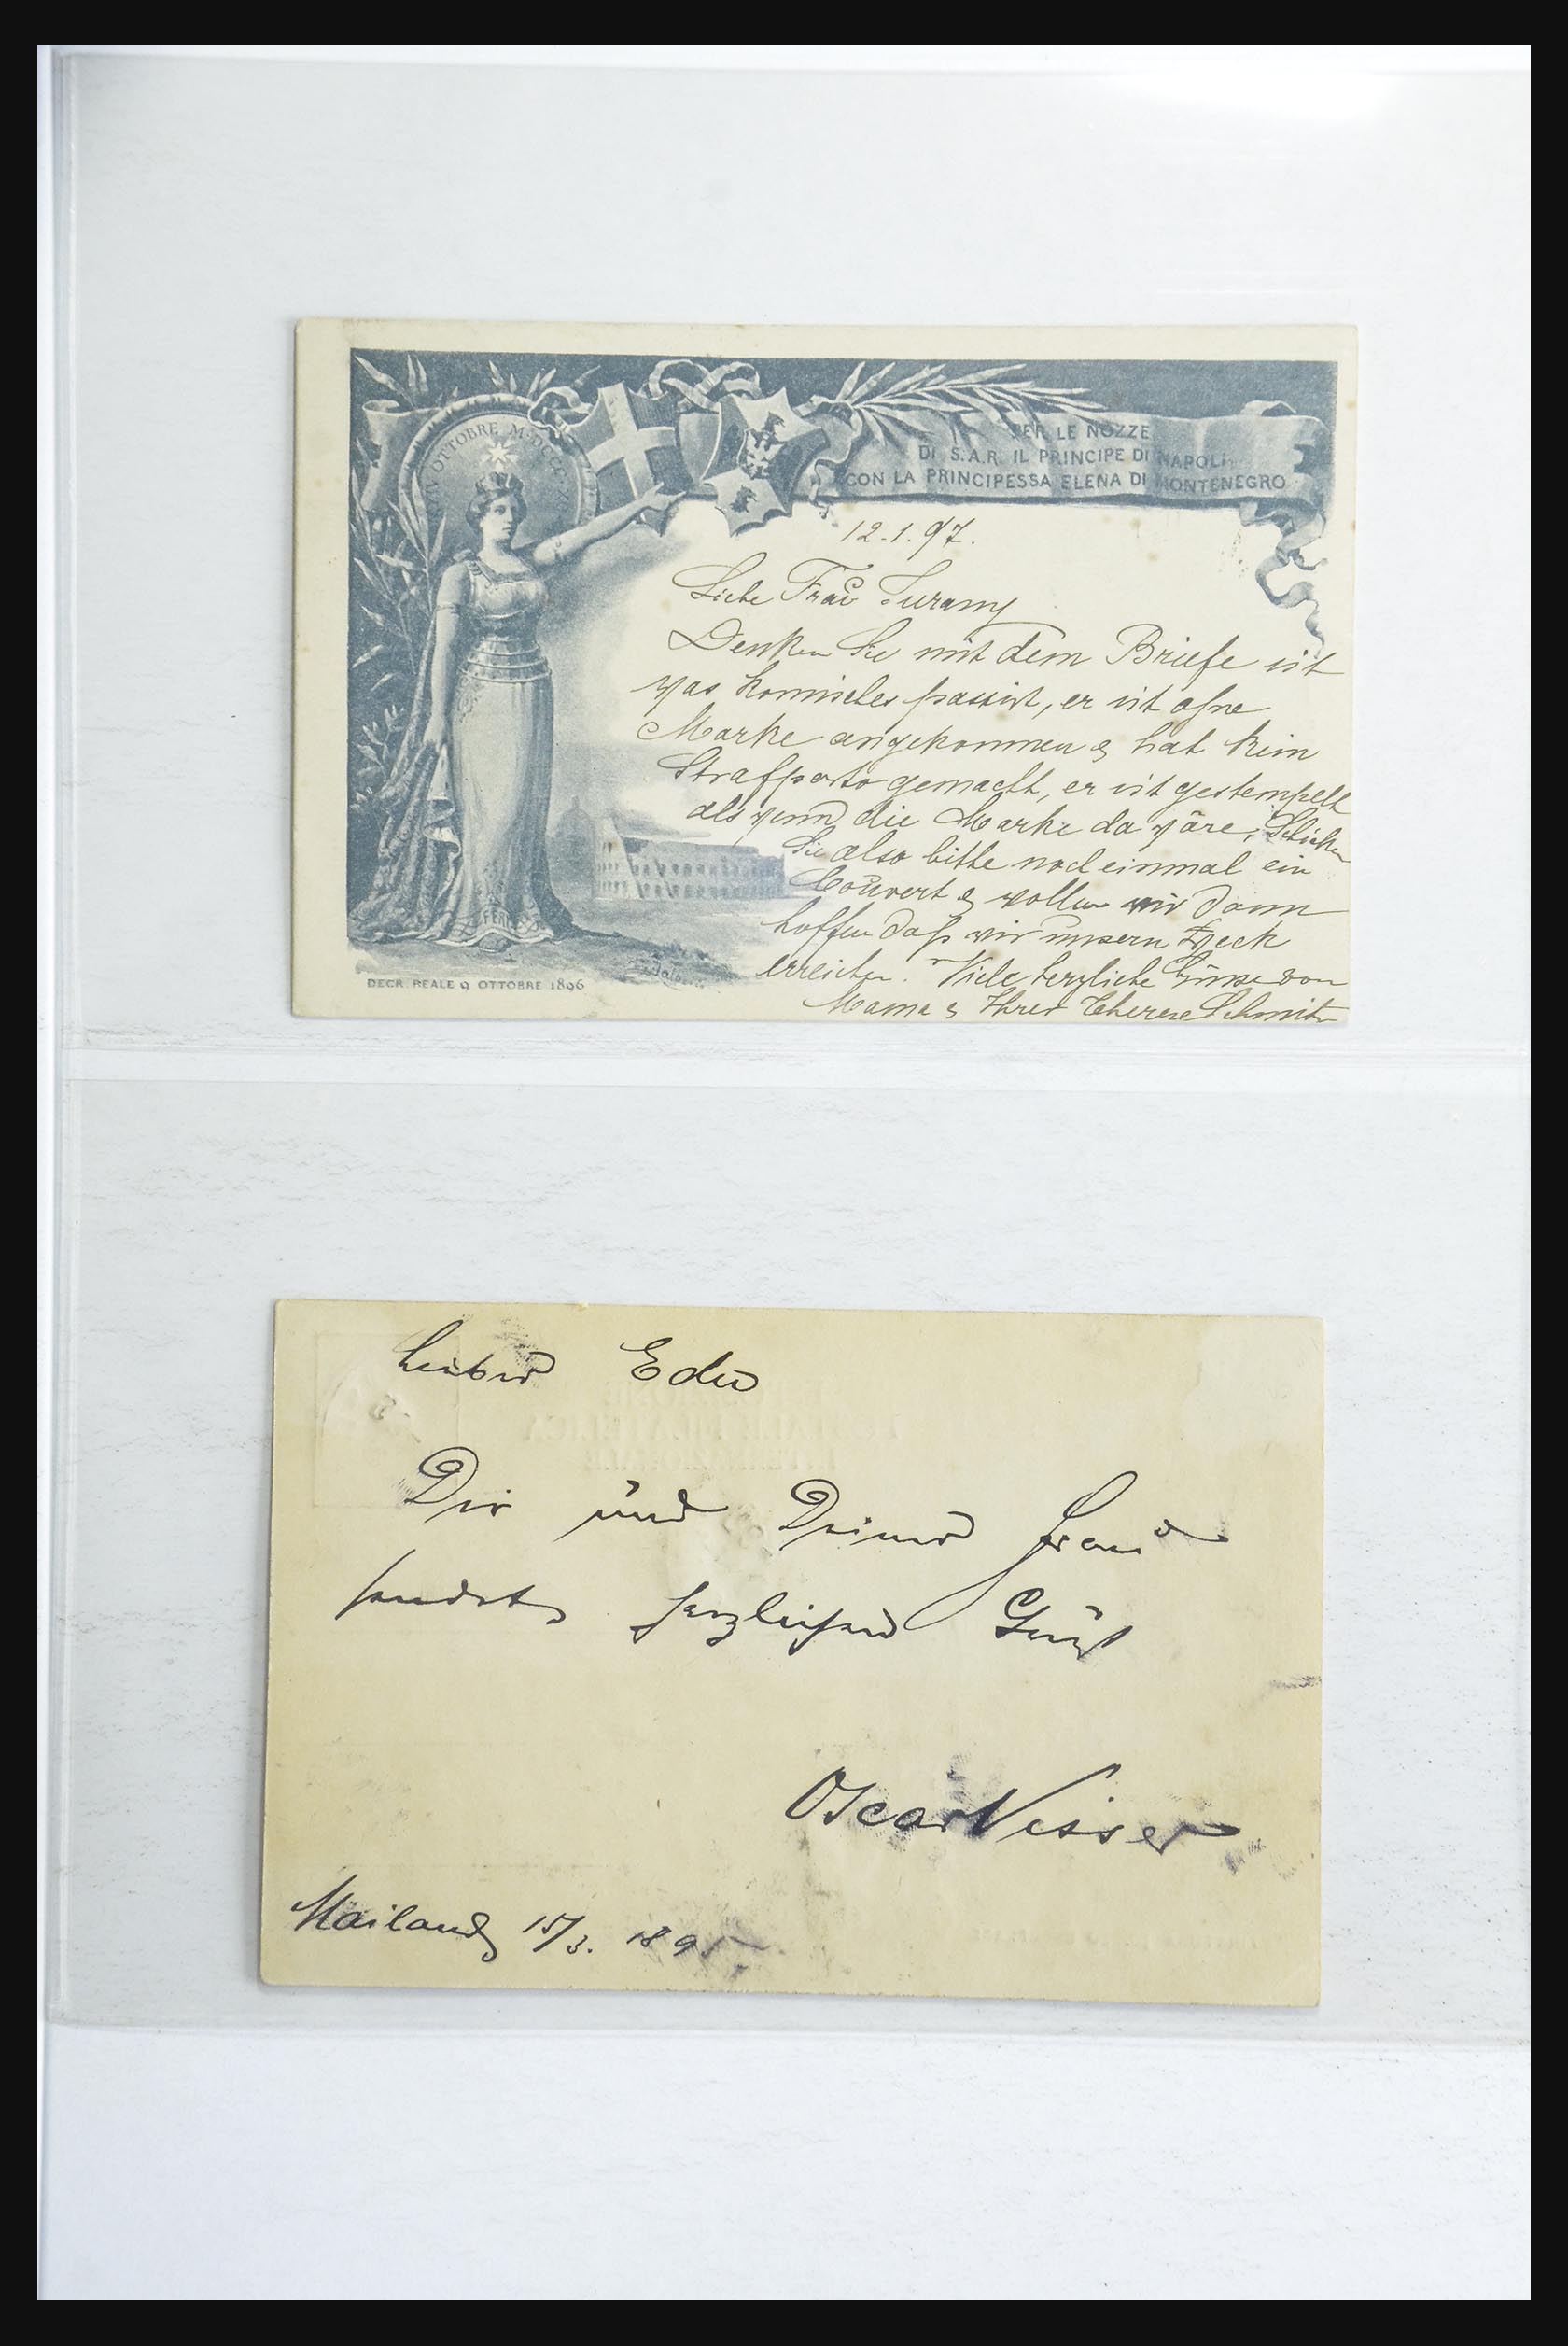 XXIV OTTOBRE MDCCCXC
PER LE NOZZE
DI S.A.R. IL PRINCIPE DI NAPOLI
CON LA PRINCIPESSA ELENA DI MONTENEGRO
12.1.97.
Liebe Frau
Denken Sie mit dem Briefe ist
was komisches passirt, er ist ohne
Marke angekommen & hat kein
Strafporto gemacht, er ist gestempelt
als wenn die Marke da wäre, Schicken
Sie also bitte noch einmal ein
Couvert & wollen wir dann
hoffen daß wir unsern Zweck
erreichen. Viele herzliche Grüsse von
Mama & Ihrer Therese Schmitz
FERT
DECR. REALE 9 OTTOBRE 1896
Lieber Edu
Dir und Deiner Frau
sendet herzlichen Gruß
Oscar Visser
Mailand 15/3. 1895